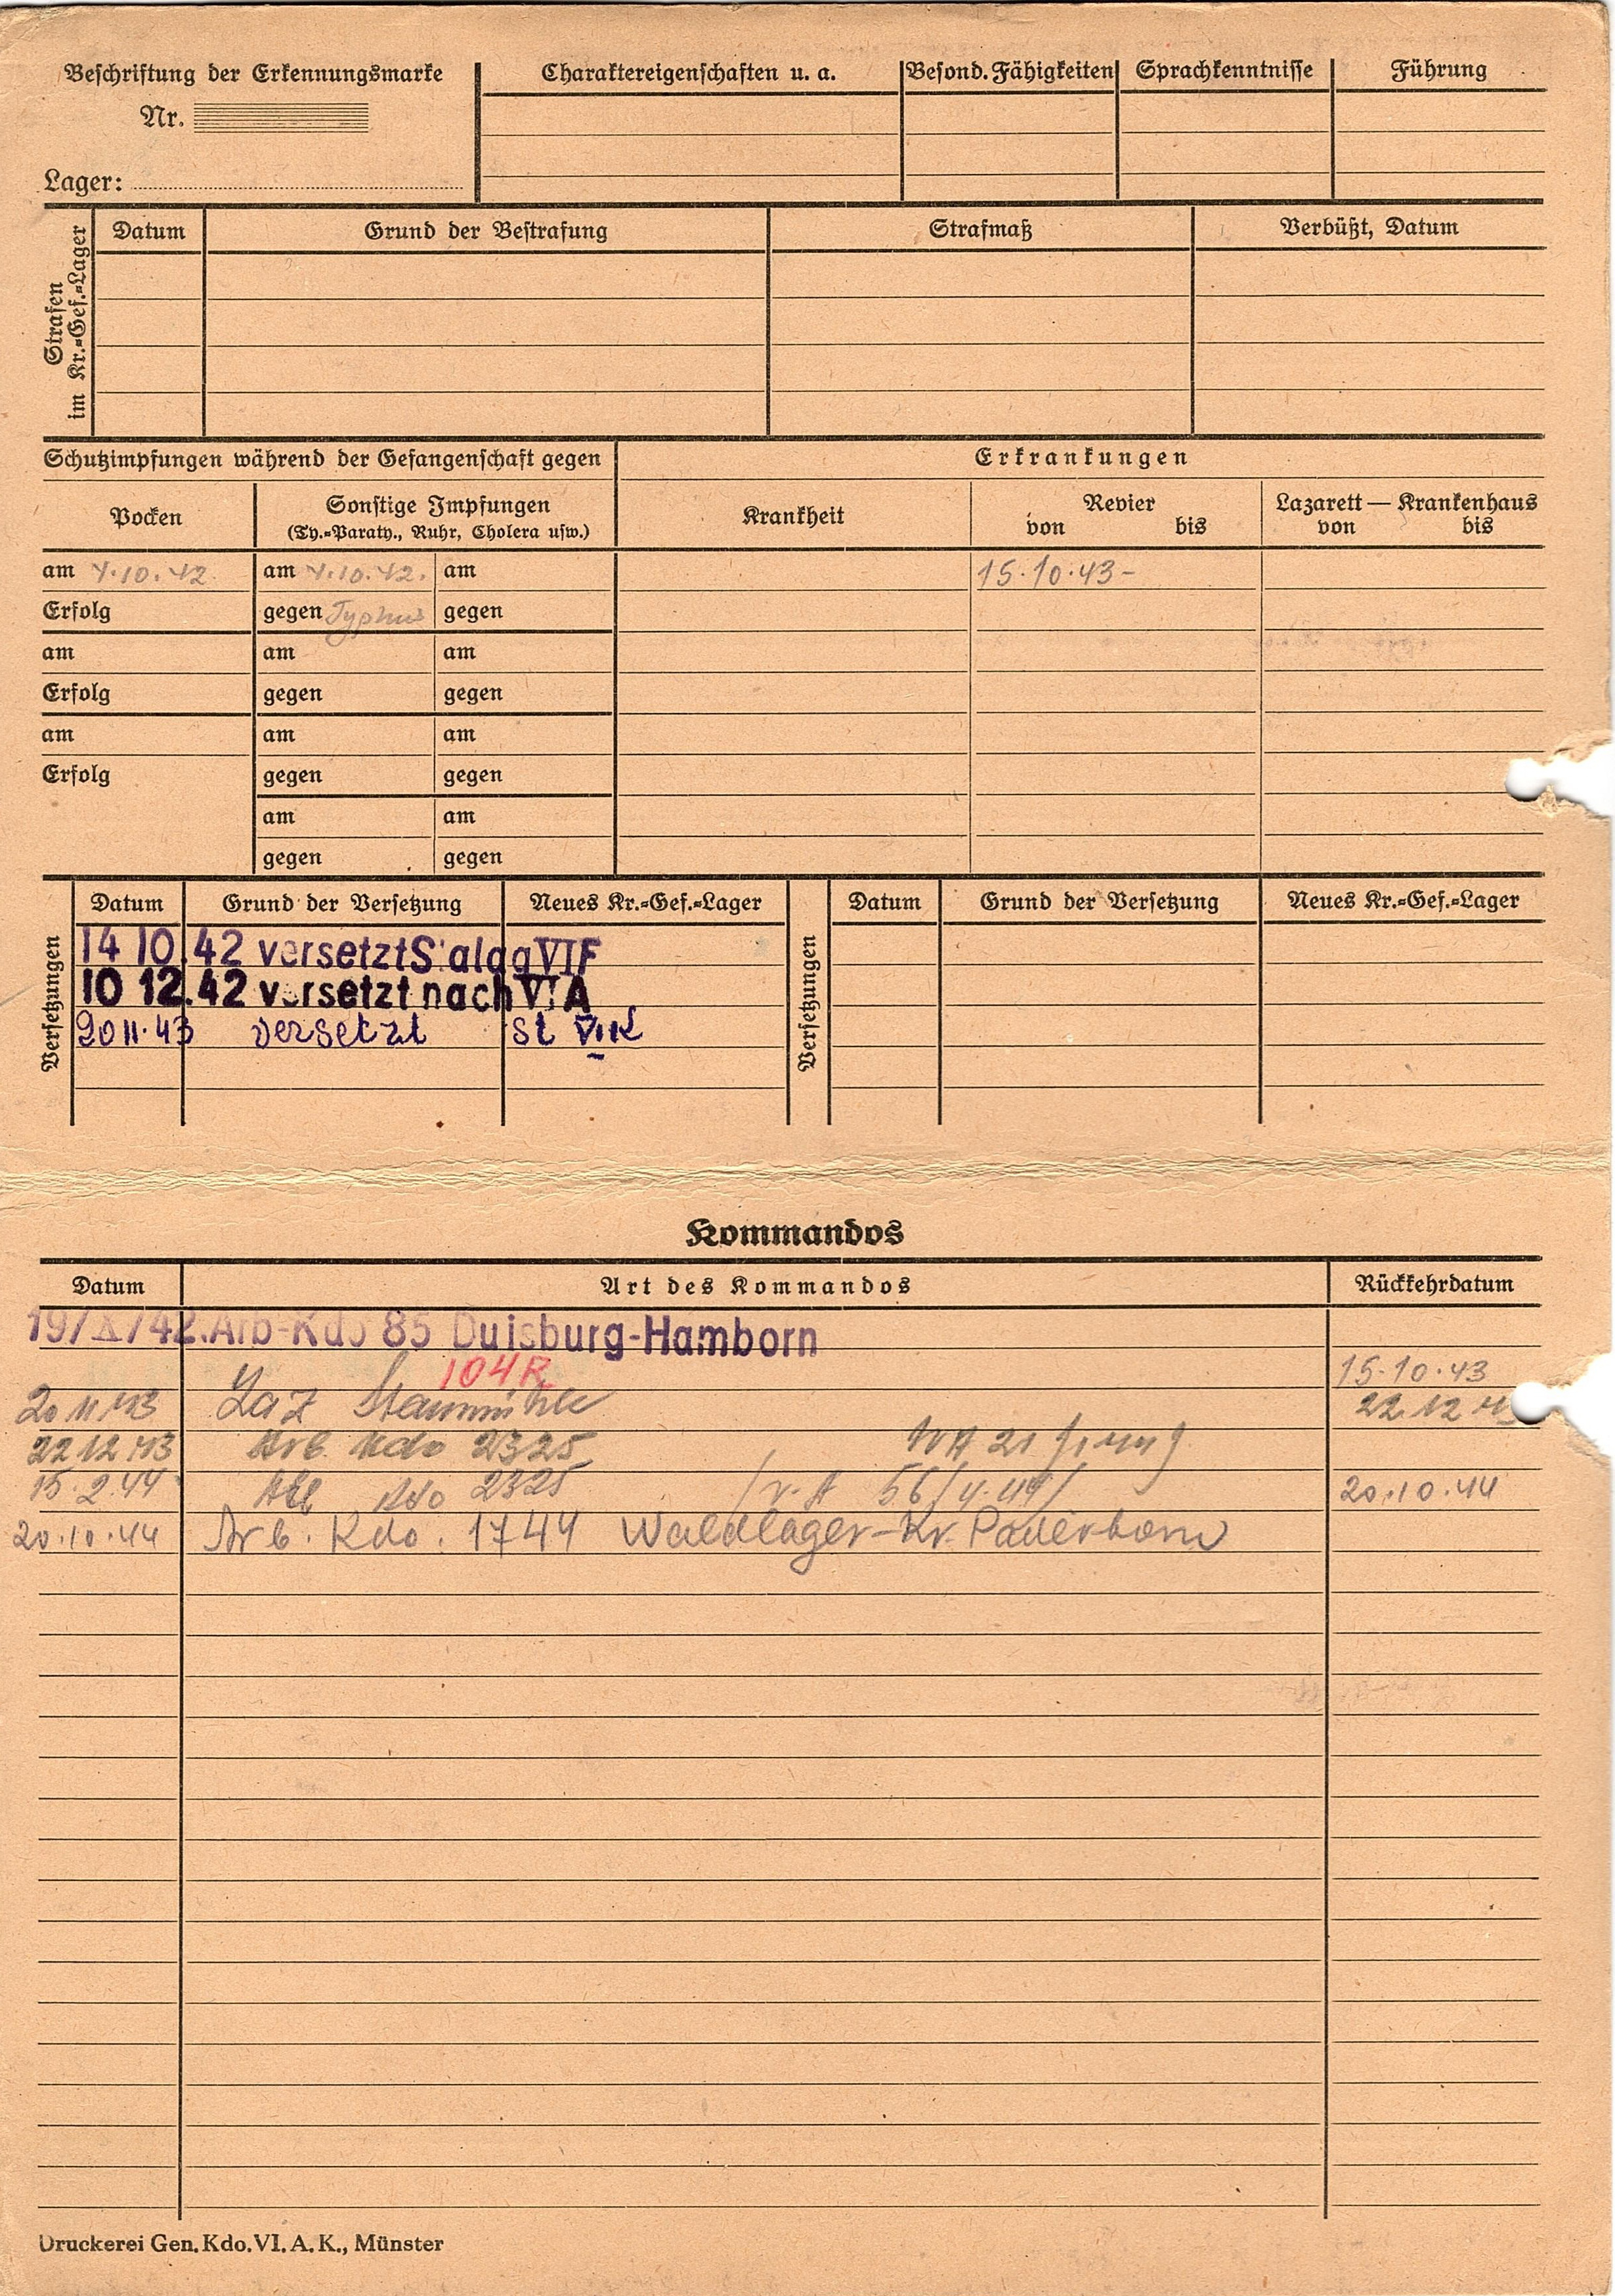 Beschriftung der Erkennungsmarke
Nr.
Lager:
Charaktereigenschaften u. a.
Besond. Fähigkeiten
Sprachkenntnisse
Führung
Strafen
im Kr.=Gef.=Lager
Datum
Grund der Bestrafung
Strafmaß
Verbüßt, Datum
Schutzimpfungen während der Gefangenschaft gegen
Erkrankungen
Pocken
Sonstige Impfungen
(Ty.=Paraty., Ruhr, Cholera usw.)
Krankheit
Revier
von bis
Lazarett — Krankenhaus
von bis
am 4.10.42 am 4.10.42. am 15.10.43-
Erfolg gegen Typhus gegen
am am am
Erfolg gegen gegen
am am am
Erfolg gegen gegen
am am
gegen gegen
Versetzungen
Datum Grund der Versetzung Neues Kr.=Gef.=Lager
14 10.42 versetzt Stalag VI F
10 12.42 versetzt nach VI A
20 11.43 versetzt St VI K
Versetzungen
Datum Grund der Versetzung Neues Kr.=Gef.=Lager
Kommandos
Datum Art des Kommandos Rückkehrdatum
19/X/42. Arb-Kdo 85 Duisburg-Hamborn
104R 15.10.43
20 11 43 Laz Staumühle 22 12 43
22 12 43 Arb. Kdo 2325
15.2.44 Kdo 2325 20.10.44
20.10.44 Arb. Kdo. 1744 Waldlager-Kr. Paderborn
Druckerei Gen. Kdo. VI. A. K., Münster